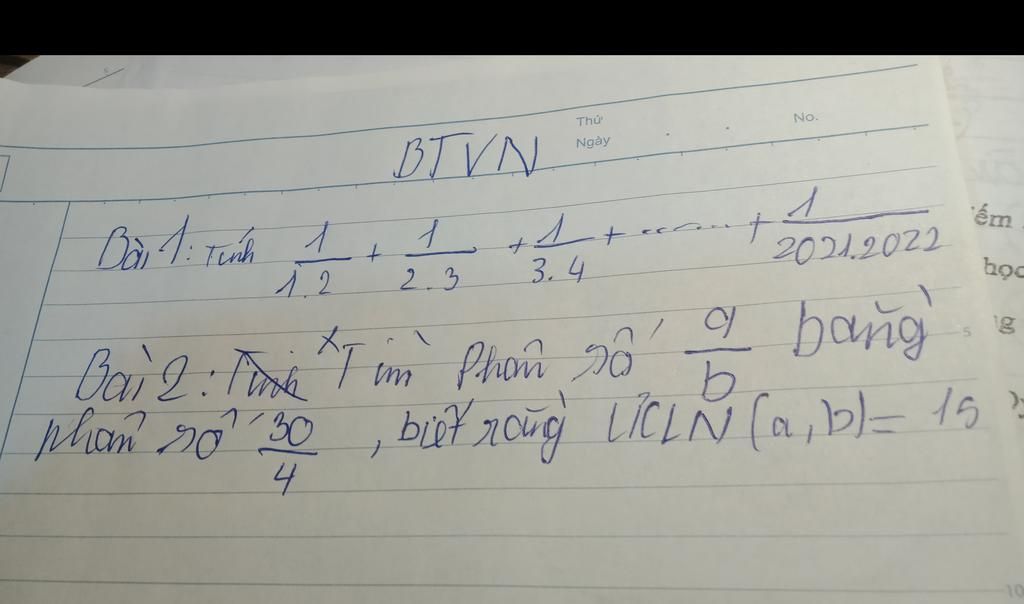 Thứ
Ngày
No.
BTVN
Bài 1: Tính 1/1.2 + 1/2.3 + 1/3.4 + ........ + 1/2021.2022
ếm
học
Bài 2: Tính Tìm Phân số a/b bằng
phân số 30/4, biết rằng ƯCLN (a, b) = 15
10